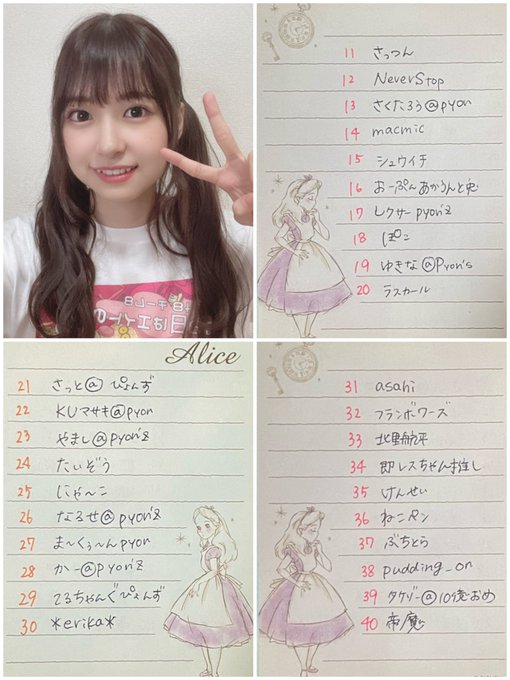 11 さっつん
12 NeverStop
13 さくたろう@pyon
14 macmic
15 シュウイチ
16 おーぷんあかうんと兎
17 レクサーpyon'z
18 ぽこ
19 ゆきな@Pyon's
20 ラスカール
Alice
21 さっと@ぴょんず
22 KUマサキ@pyon
23 やまし@pyon'z
24 たいぞう
25 にゃ〜こ
26 なるせ@pyon'z
27 ま〜くぅ〜んpyon
28 かー@pyon'z
29 てるちゃんぐぴょんず
30 *erika*
31 asahi
32 フランボワーズ
33 北野航平
34 即レスちゃん推し
35 けんせい
36 ねこペン
37 ぶちとら
38 pudding_on
39 タケゾー@10億おめ
40